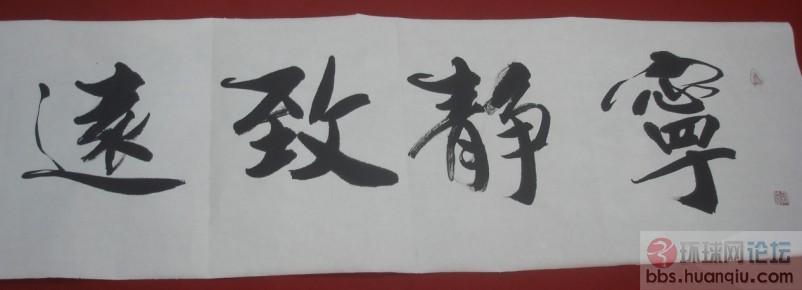 寧靜致遠
环球网论坛
bbs.huanqiu.com